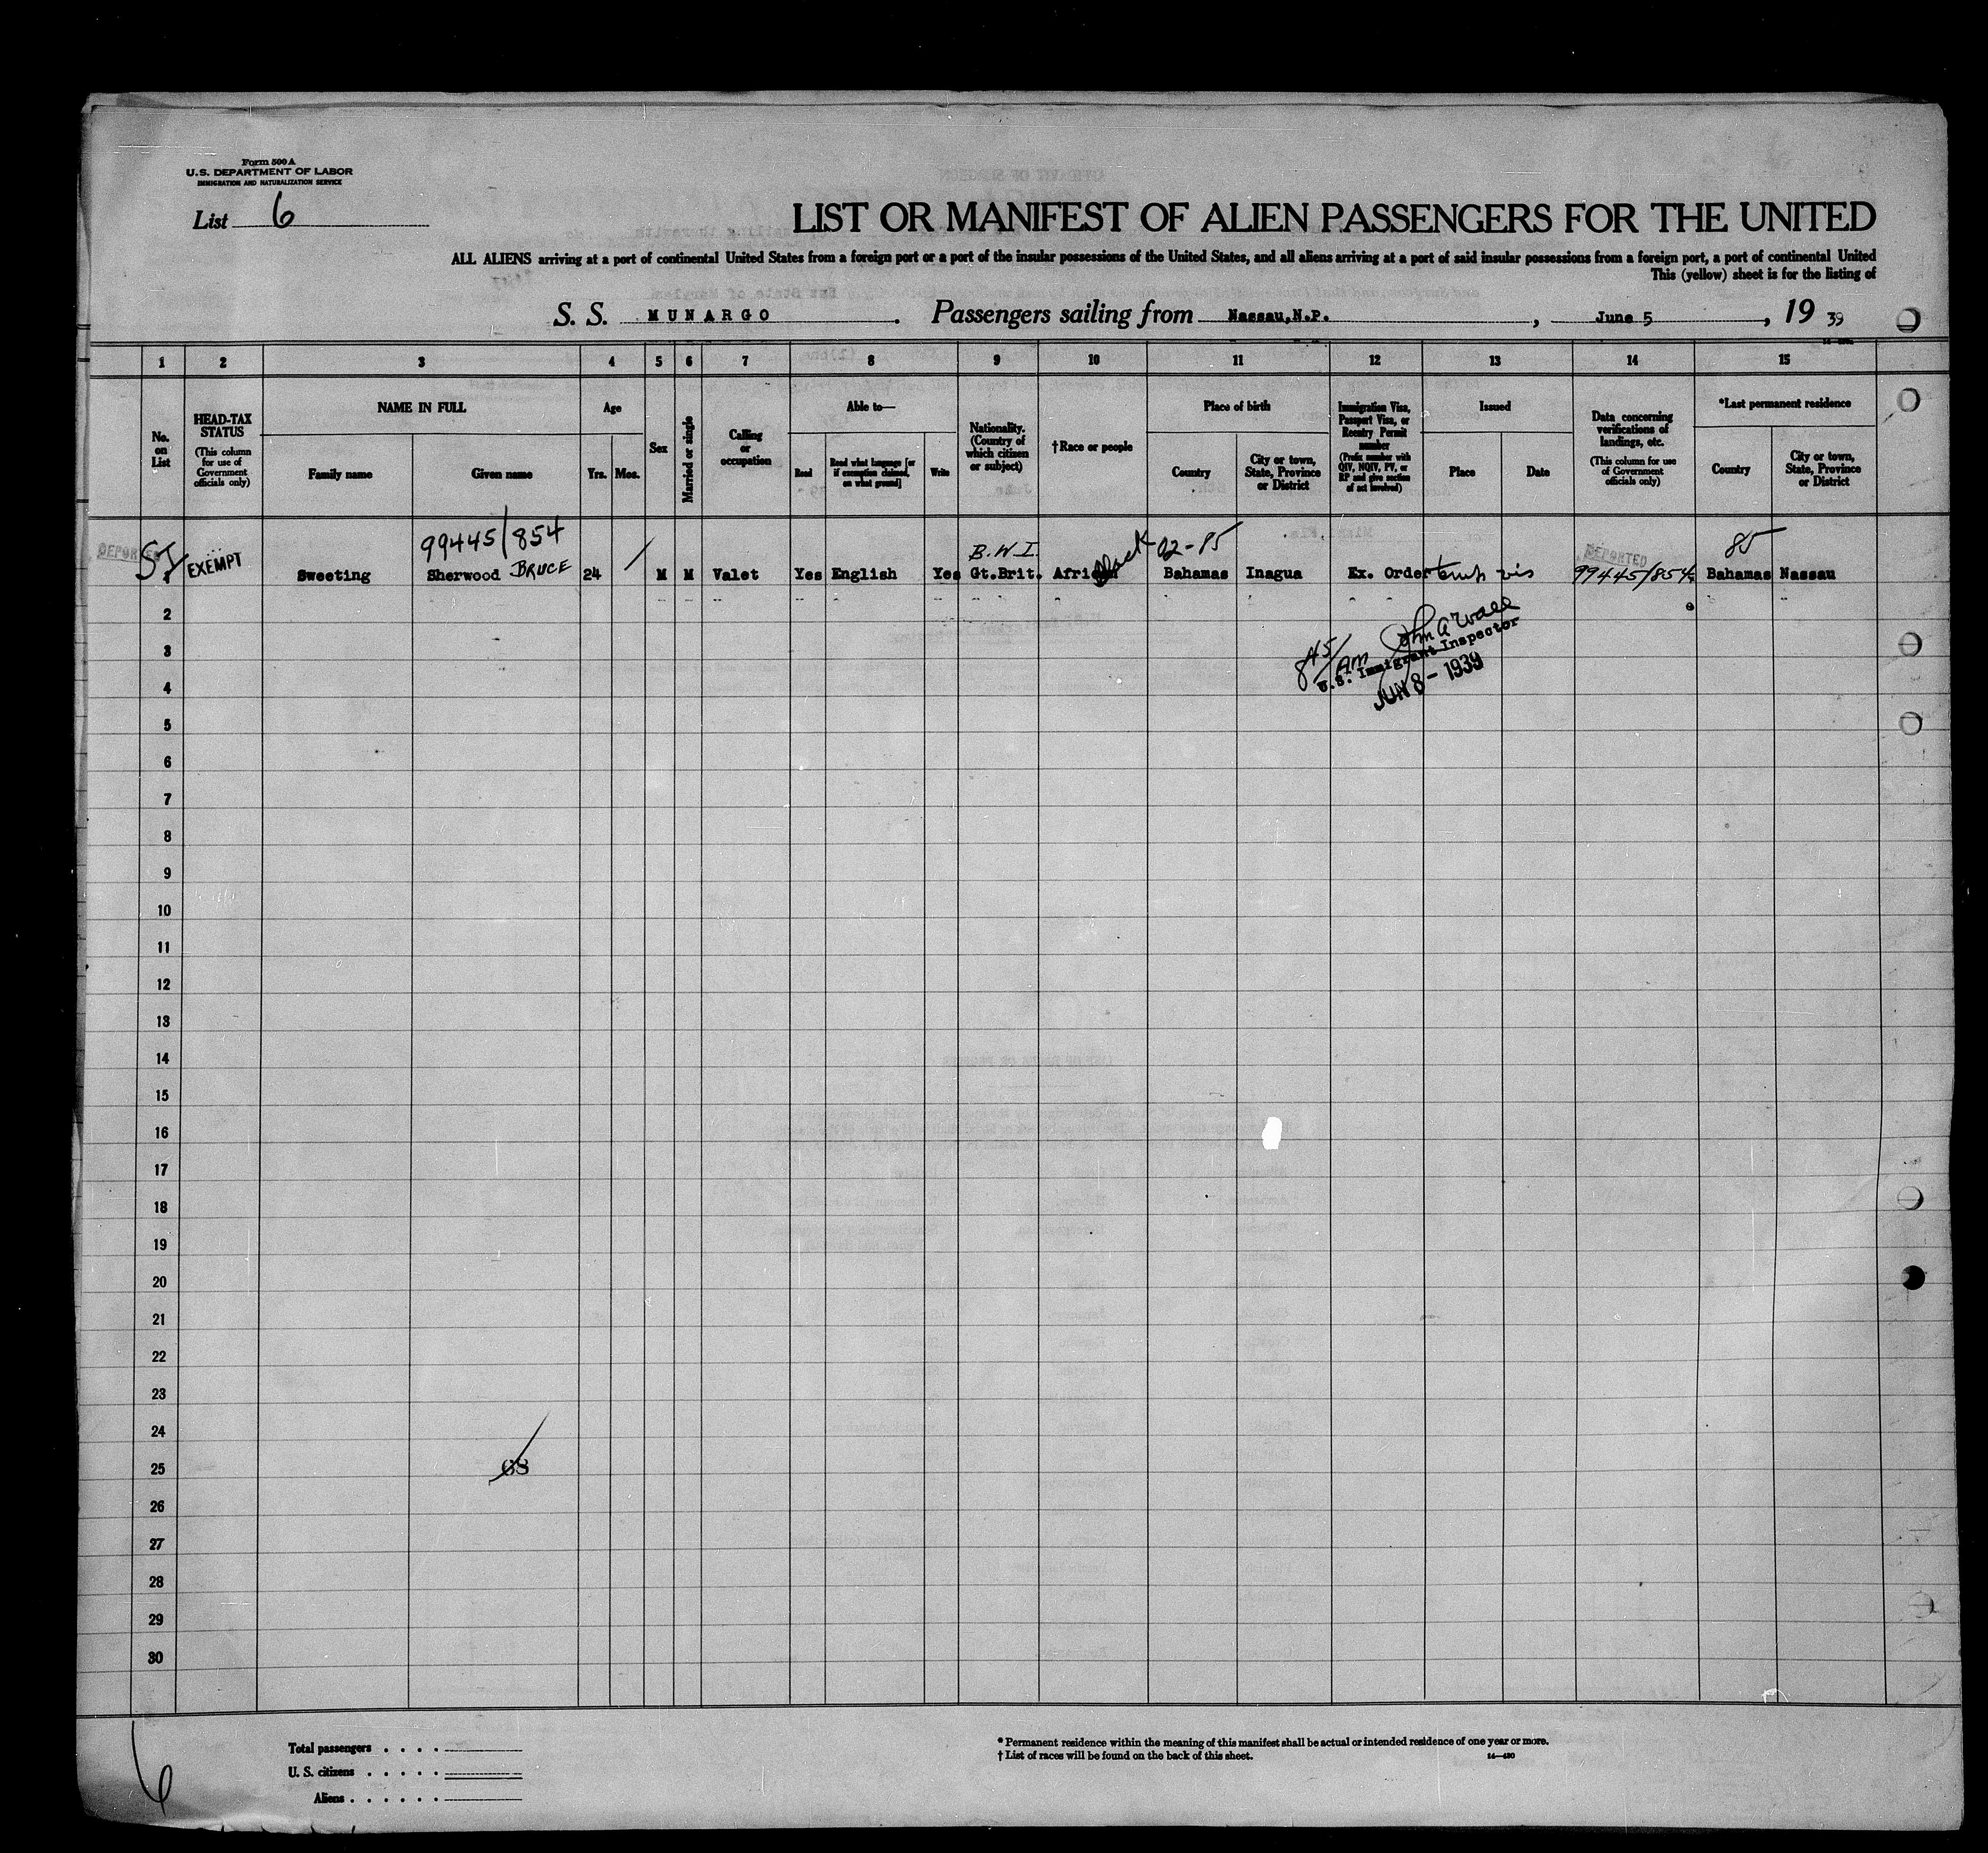 Form 500 A
U.S. DEPARTMENT OF LABOR
IMMIGRATION AND NATURALIZATION SERVICE
List 6
LIST OR MANIFEST OF ALIEN PASSENGERS FOR THE UNITED
ALL ALIENS arriving at a port of continental United States from a foreign port or a port of the insular possessions of the United States, and all aliens arriving at a port of said insular possessions from a foreign port, a port of continental United
This (yellow) sheet is for the listing of
S. S. MUNARGO. Passengers sailing from Nassau,N.P., June 5, 19 39
1 2 3 4 5 6 7 8 9 10 11 12 13 14 15
No. on List
HEAD-TAX STATUS (This column for use of Government officials only)
NAME IN FULL
Family name
Given name
Age
Yrs. Mos.
Sex
Married or single
Calling or occupation
Able to—
Read
Read what language [or if exemption claimed, on what ground]
Write
Nationality. (Country of which citizen or subject)
†Race or people
Place of birth
Country
City or town, State, Province or District
Immigration Visa, Passport Visa, or Reentry Permit number (Prefix number with QIV, NQIV, PV, or RP and give section of act involved)
Issued
Place
Date
Data concerning verifications of landings, etc. (This column for use of Government officials only)
*Last permanent residence
Country
City or town, State, Province or District
99445/854 B.W.I. 92-85 85
DEPORTED SI EXEMPT Sweeting Sherwood BRUCE 24 M M Valet Yes English Yes Gt.Brit. African Black Bahamas Inagua Ex. Order temp vis DEPORTED 99445/854 Bahamas Nassau
2
3
8 45/AM
U.S. Immigrant Inspector
JUN 8 - 1939
4
5
6
7
8
9
10
11
12
13
14
15
16
17
18
19
20
21
22
23
24
25 68
26
27
28
29
30
6
Total passengers . . . .
U. S. citizens . . . . .
Aliens . . . . . .
* Permanent residence within the meaning of this manifest shall be actual or intended residence of one year or more.
† List of races will be found on the back of this sheet.
14—430